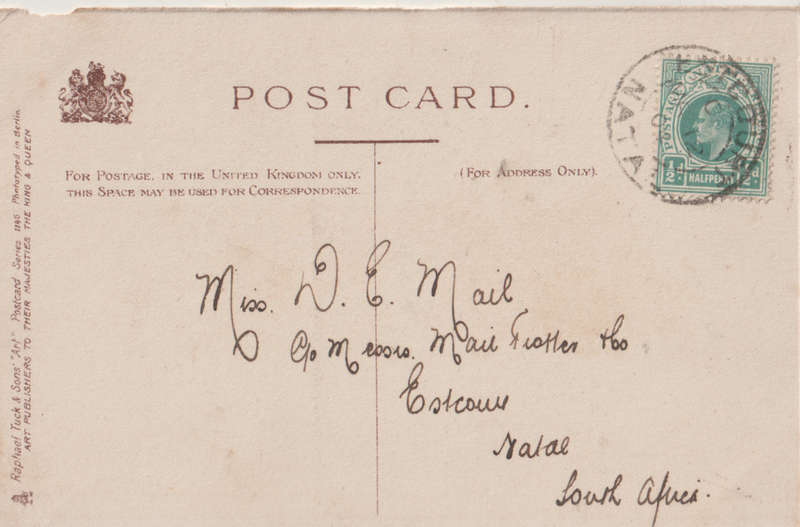 POST CARD.
FOR POSTAGE, IN THE UNITED KINGDOM ONLY,
THIS SPACE MAY BE USED FOR CORRESPONDENCE.
(FOR ADDRESS ONLY).
NATAL
POSTAGE
½d HALFPENNY
Miss. D. E. Mail
c/o Messrs. Mail Trotter & Co
Estcourt
Natal
South Africa.
Raphael Tuck & Sons' "Art" Postcard Series 1145 Phototyped in Berlin
ART PUBLISHERS TO THEIR MAJESTIES THE KING & QUEEN